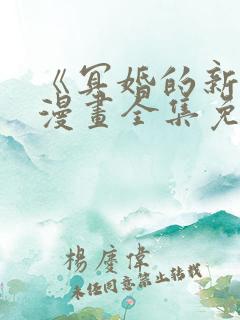 《冥婚的新
漫畫全集免
楊慶偉
未经同意禁止转载